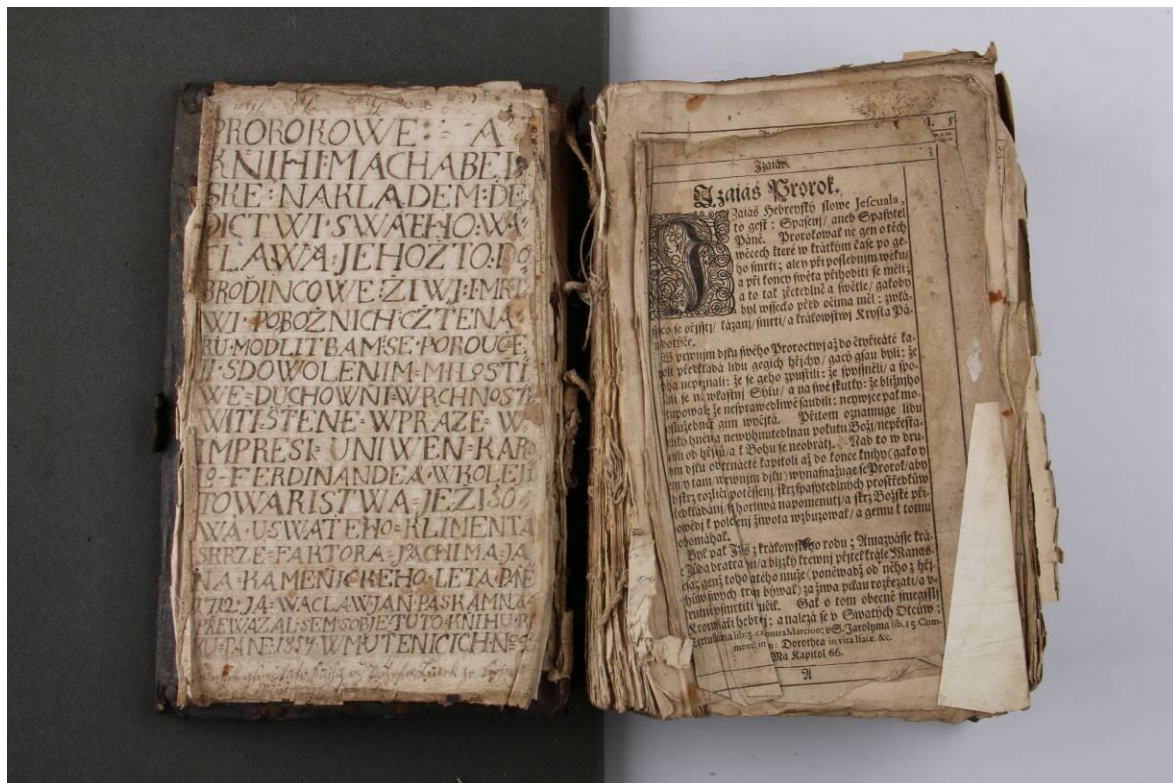 PROROKOWE = A
KNIHI MACHABEJ
SKE · NAKLADEM · DE
DICTWI · SWATEHO · WA
CLAWA · JEHOŽTO · DO
BRODINCOWE · ŽIWJ · I · MRT
WI · POBOŽNICH · CZTENA
RU · MODLITBAM · SE · POROUCE
SDOWOLENIM = MILOSTI
WE = DUCHOWNI = WRCHNOSTI
WITIŠTENE = WPRAZE = W
IMPRESI = UNIWEN = KARO
LO = FERDINANDEA · WKOLEJI
TOWARISTWA = JEŽISO
WA · U · SWATEHO = KLIMENTA
SKRZE = FAKTORA = JOACHIMA · JA
NA · KAMENICKEHO · LETA · PANE
1712 · JA = WACLAW JAN PASKA
PREWAZAL · SEM · SOBJE · TUTO · KNIHU · R
KU · PANE · 1854 · W MUTENICICH · No
Izaiáš.
3
Izaiáš Prorok.
IZaiáš Hebreysky slowe Jescuala,
to gest: Spasenj/ aneb Spasytel
Páně. Prorokowal ne gen o těch
wěcech které w krátkým čase po ge-
ho smrti; ale y při poslednjm wěku/
a při koncy swěta přihoditi se měli;
a to tak zřetedlně a swětle/ gakoby
byl wssecko před očima měl: zwlá-
sstě co se přjsstj/ kázanj/ smrti/ a králowstwj Krysta Pá-
na dotýče.
W prwnjm djlu swého Proroctwj až do čtyřicáté ka-
pitoli předkládá lidu gegich hřjchy/ gacý gsau byli: že
Boha nepoznali: že se geho zpustili: že zpyssněli/ a spo-
lehali se na wlastnj Sylu/ a na swé skutky: že bližnjho
utupowali: že nesprawedliwě saudili: neywjce pak mo-
dloslužebnost gim wyčjtá. Přitom oznamuge lidu
tomuto hněwu newyhnutedlnau pokutu Božj/ nepřesta-
nauli od hřjchů/ a k Bohu se neobrátj. Nad to w dru-
hým djlu od kapitoli až do konce knihy (gako y
y tam/ w prwnjm djlu) wynasnažuge se Prorok/ aby
skrz rozličná potěssenj skrz spasytedlných prostředkůw
předkládánj/ horliwa napomenutj/ a skrz Božské při-
powědj k polepssenj žiwota wzbuzowal/ a gemu k tomu
dopomáhal.
Byl pak z králowského rodu; Amazyásse krá-
le Júda bratra syn/ a bljzký krewnj přjtel krále Manas-
sesa; genž toho swatého muže (poněwadž od něho z hřj-
chůw swých trestán býwal) za žiwa pilau rozřezati/ a
ukrutně usmrtiti učil. Gak o tom obecně smegsslj
Kronykáři hebrejsstj; a nalezá se v Swatých Otcůw:
Tertuliana lib: 3. contra Marcion: v S. Jarolyma lib. 15 Com-
ment. in : Dorothea in vita Isaiæ. &c.
Má Kapitol 66.
A